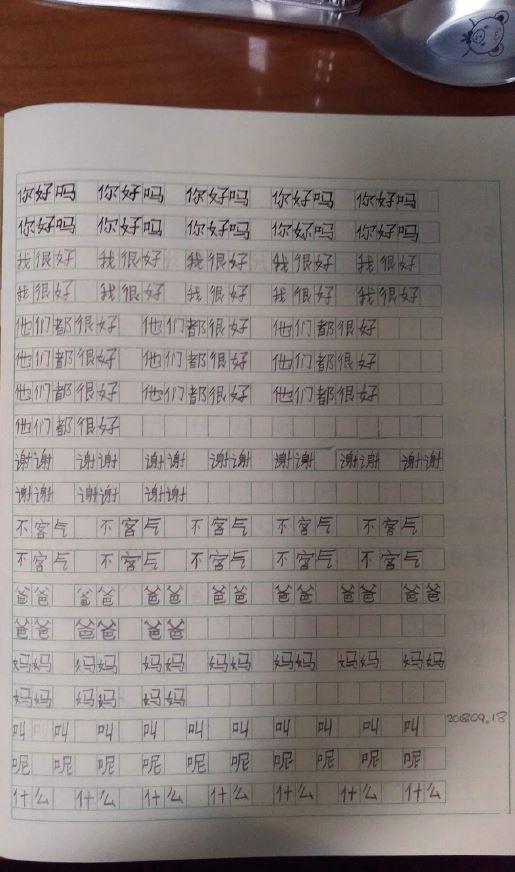 你好吗 你好吗 你好吗 你好吗 你好吗
你好吗 你好吗 你好吗 你好吗 你好吗
我很好 我很好 我很好 我很好 我很好
我很好 我很好 我很好 我很好 我很好
他们都很好 他们都很好 他们都很好
他们都很好 他们都很好 他们都很好
他们都很好 他们都很好 他们都很好
他们都很好
谢谢 谢谢 谢谢 谢谢 谢谢 谢谢 谢谢
谢谢 谢谢 谢谢
不客气 不客气 不客气 不客气 不客气
不客气 不客气 不客气 不客气 不客气
爸爸 爸爸 爸爸 爸爸 爸爸 爸爸 爸爸
爸爸 爸爸 爸爸
妈妈 妈妈 妈妈 妈妈 妈妈 妈妈 妈妈
妈妈 妈妈 妈妈
叫 叫 叫 叫 叫 叫 叫 叫 叫 叫 2018.09.18
呢 呢 呢 呢 呢 呢 呢 呢 呢 呢
什么 什么 什么 什么 什么 什么 什么